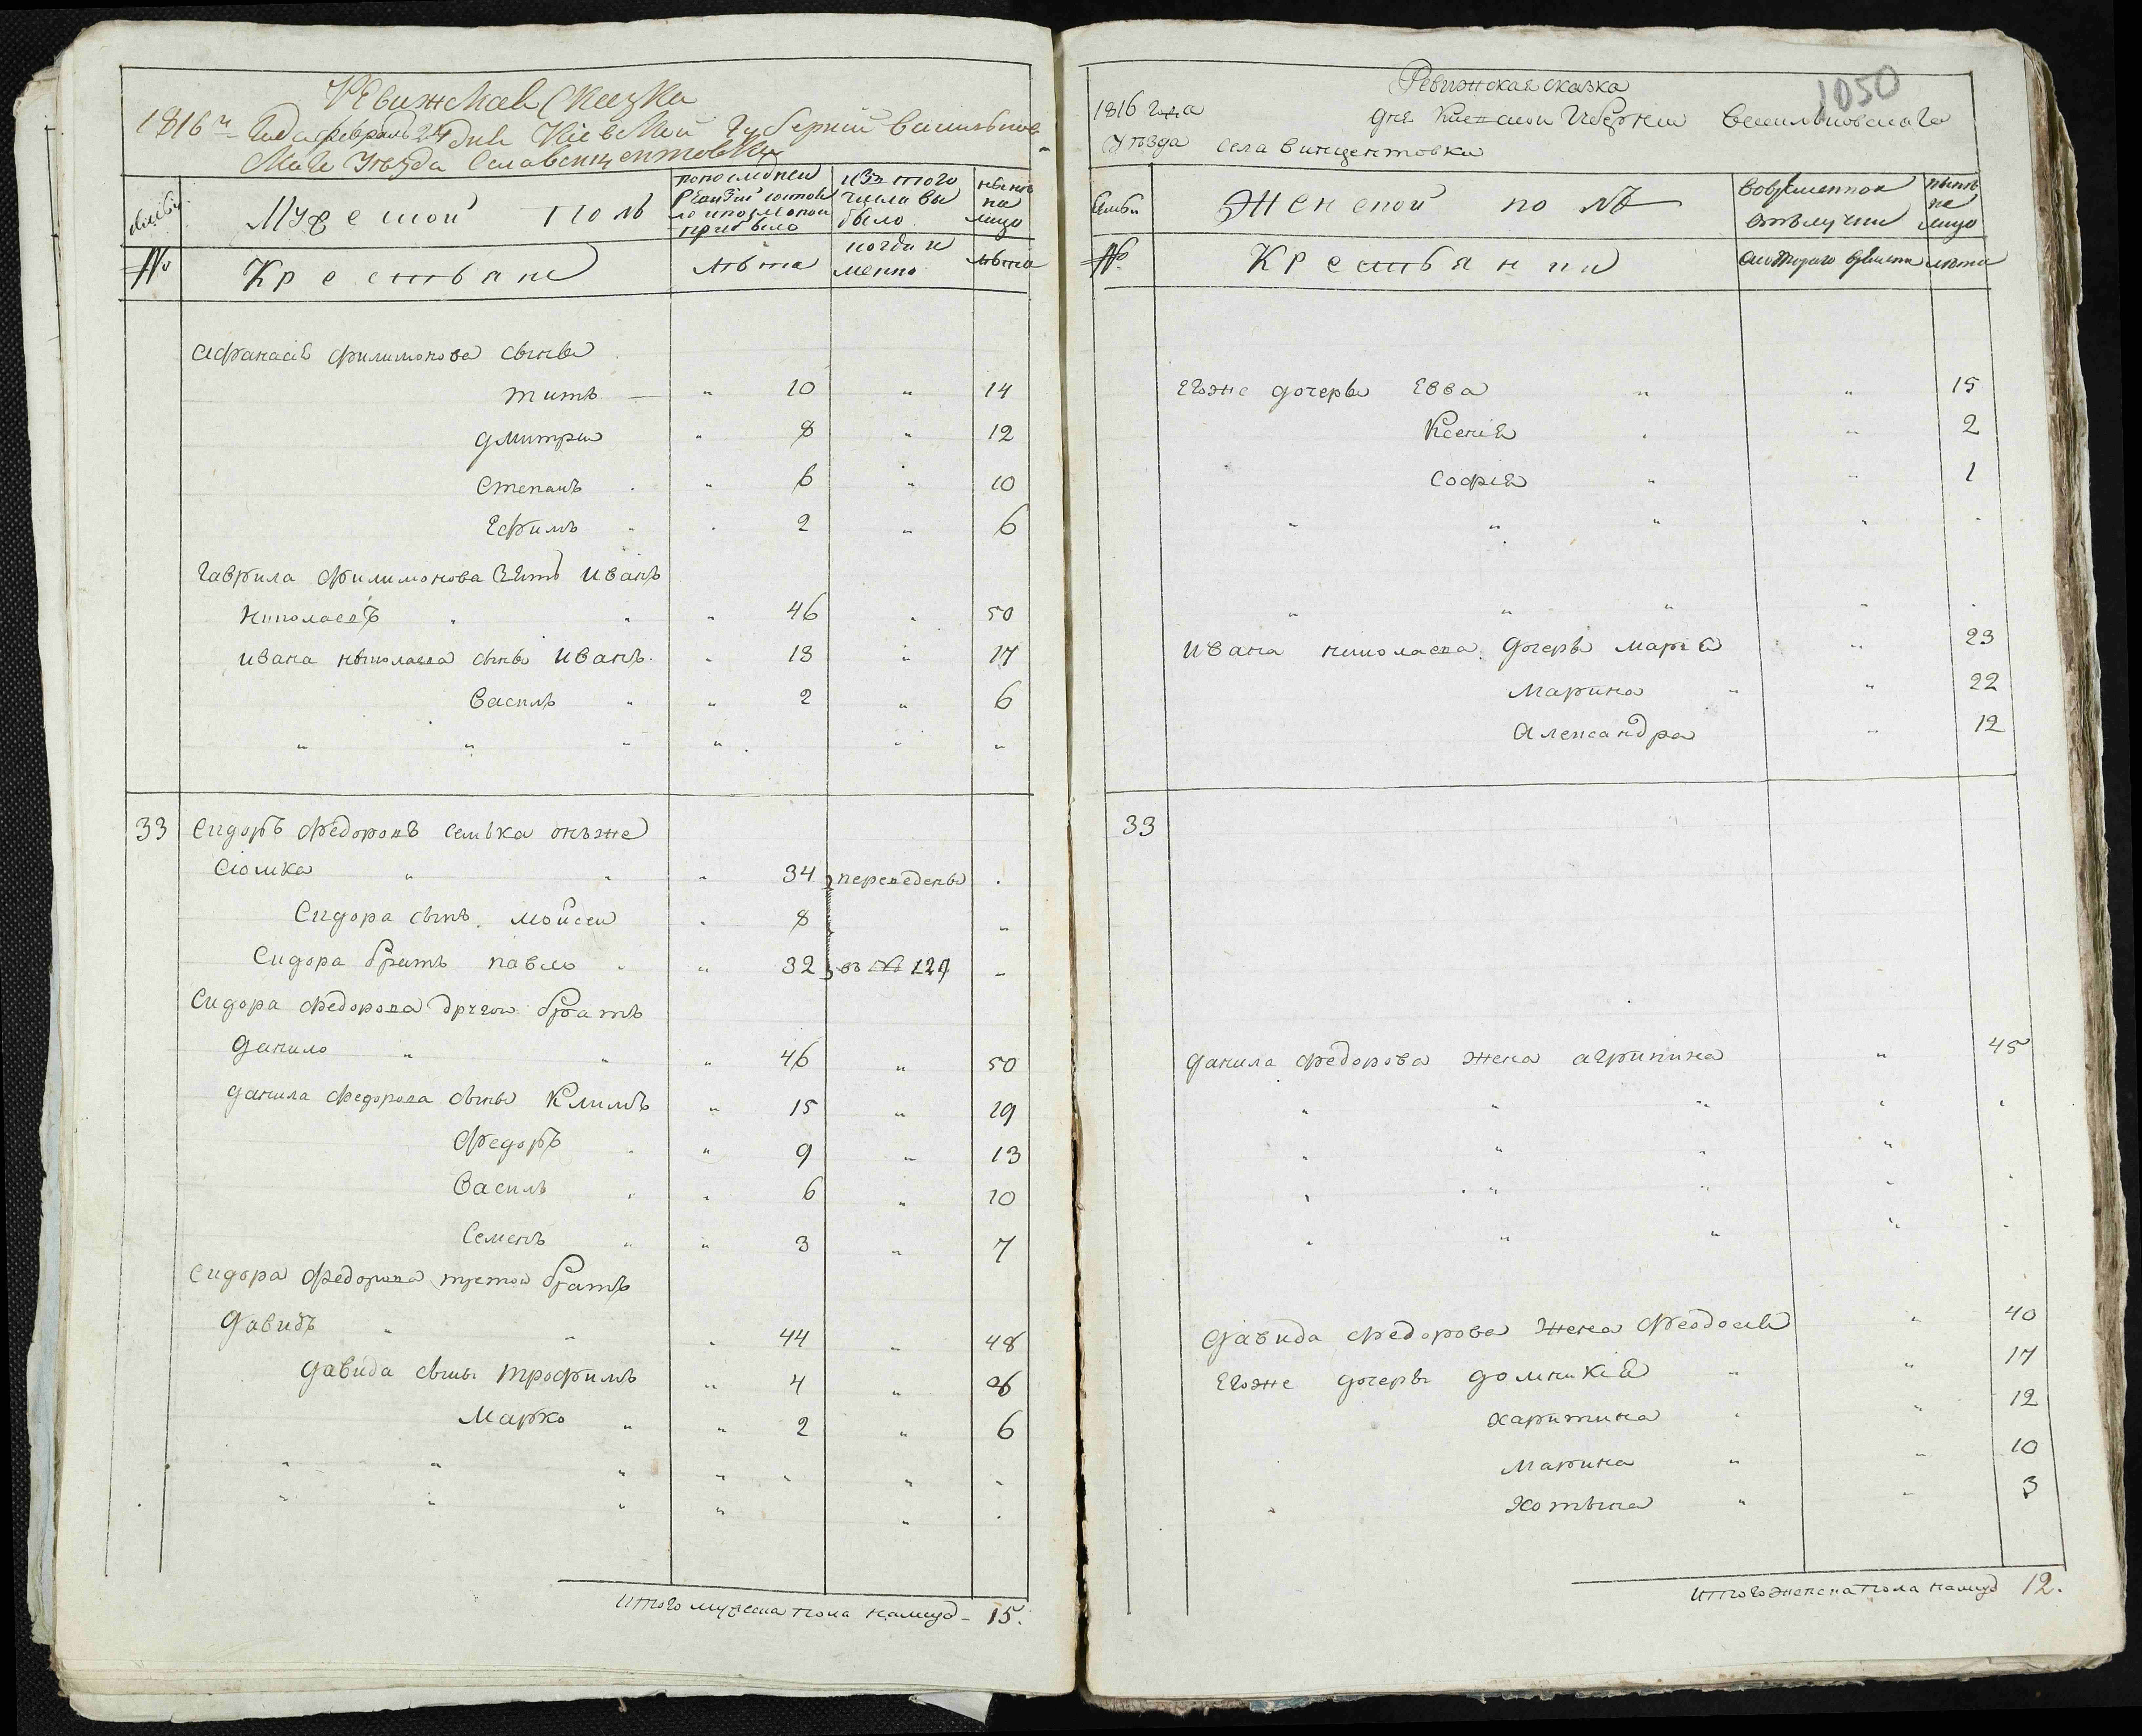 Ревижская Сказка
1816го Года февраля 24 дня Кіевской Губерніи Васильков-
скаго Уезда Села Винцентовки
семьи
Мужеской полъ
по последнеи ревизіи состояло и после оной прибыло
изъ того числа выбыло
ныне на лицо
№
Крестьяне
лѣта
когда именно
лѣта
Афанасія Филимонова сыны
Титъ — " 10 " 14
Дмитри " 8 " 12
Степанъ " 6 " 10
Ефимъ " 2 " 6
Гаврила Филимонова зять Иванъ
Николаевъ " " 46 " 50
Ивана Николаева сыны Иванъ " 13 " 17
Василь " " 2 " 6
33 Сидоръ Федоровъ Семька онъже
Сіомка " " 34 переведены
Сидора сынъ Мойсеи " 8 "
Сидора братъ Павло " 32 въ № 129 "
Сидора Федорова другои братъ
Данило " " 46 " 50
Данила Федорова сыны Климъ " 15 " 19
Федоръ " 9 " 13
Василь " 6 " 10
Семенъ " " 3 " 7
Сидора Федорова третои братъ
Давидъ " " 44 " 48
Давида сыны Трофимъ " 4 " 8
Марко " " 2 " 6
Итого мужеска пола налицо - 15.
1050
Ревижская сказка
1816 года дня Киевской Губернии Васильковскаго
Уѣзда села Винцентовки
семьи
Женской полъ
во временной отлучки
ныне на лицо
№
Крестьянки
с которого времени
лѣта
Егоже дочеры Евва " " 15
Ксенія " " 2
Софія " " 1
Ивана Николаева дочеры Марія " 23
Марина " " 22
Александра " 12
33
Данила Федорова жена Агрипина " 45
Давида Федорова жена Феодосія " 40
Егоже дочеры Домникія " " 17
Харитина " " 12
Марина " " 10
Хотына " " 3
Итого женска пола налицо 12.